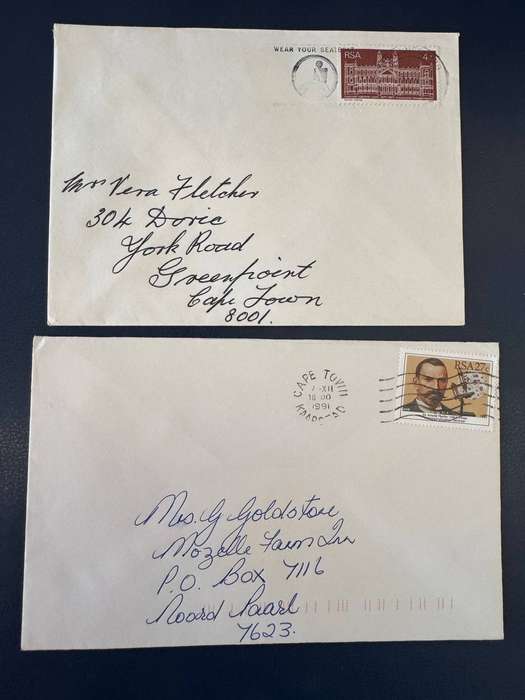 WEAR YOUR SEATB
RSA 4c
Mrs Vera Fletcher
304 Doric
York Road
Greenpoint
Cape Town
8001.
CAPE TOWN
7-XII
1991
KAAPSTAD
RSA 27c
Mrs. G Goldstone
Mozelle Farm Inn
P.O. Box 7116
Noord Paarl
7623.